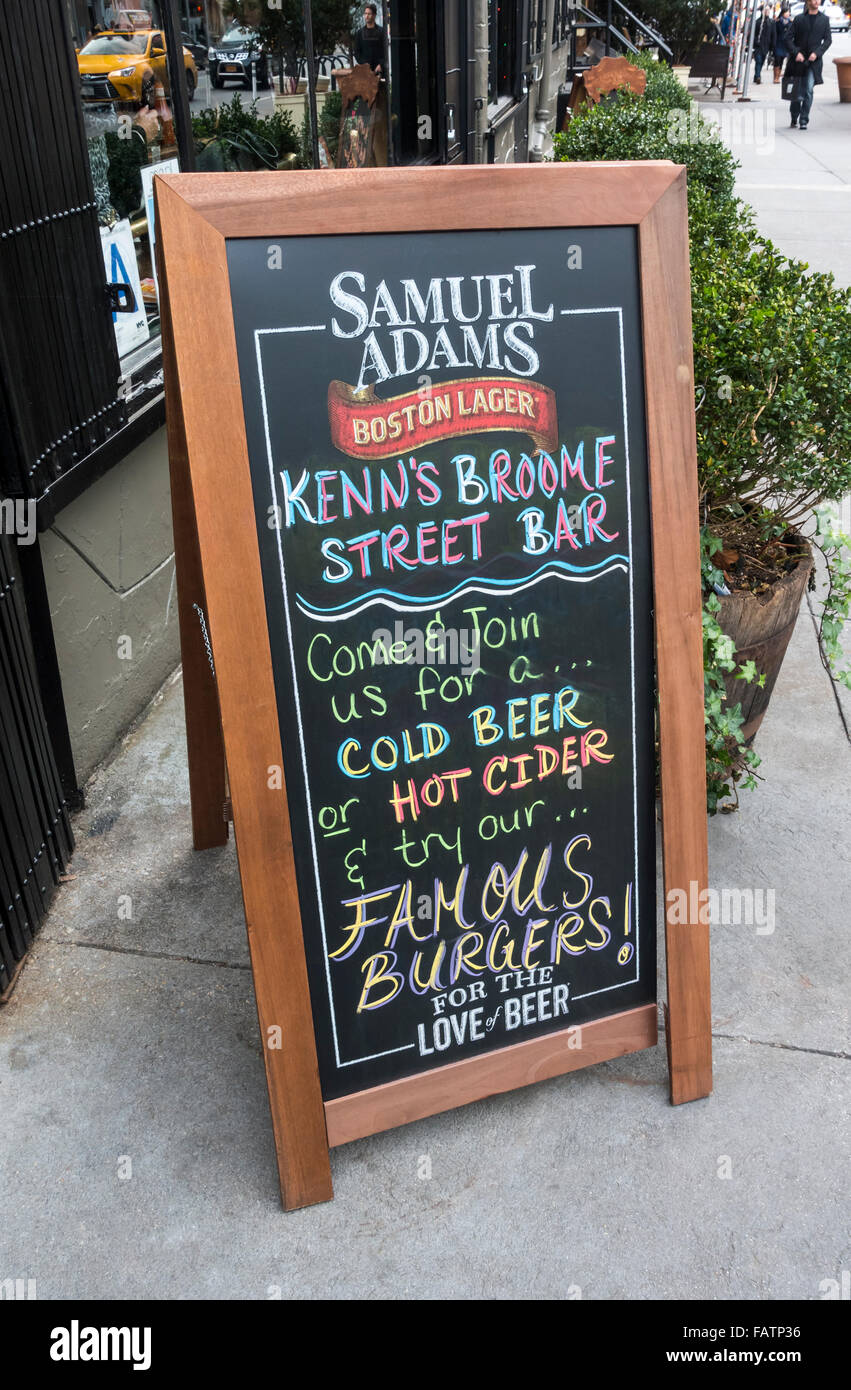 SAMUEL
ADAMS
BOSTON LAGER
KENN'S BROOME
STREET BAR
Come & Join
us for a...
COLD BEER
or HOT CIDER
& try our...
FAMOUS
BURGERS!
FOR THE
LOVE of BEER
A
alamy
Image ID: FATP36
www.alamy.com